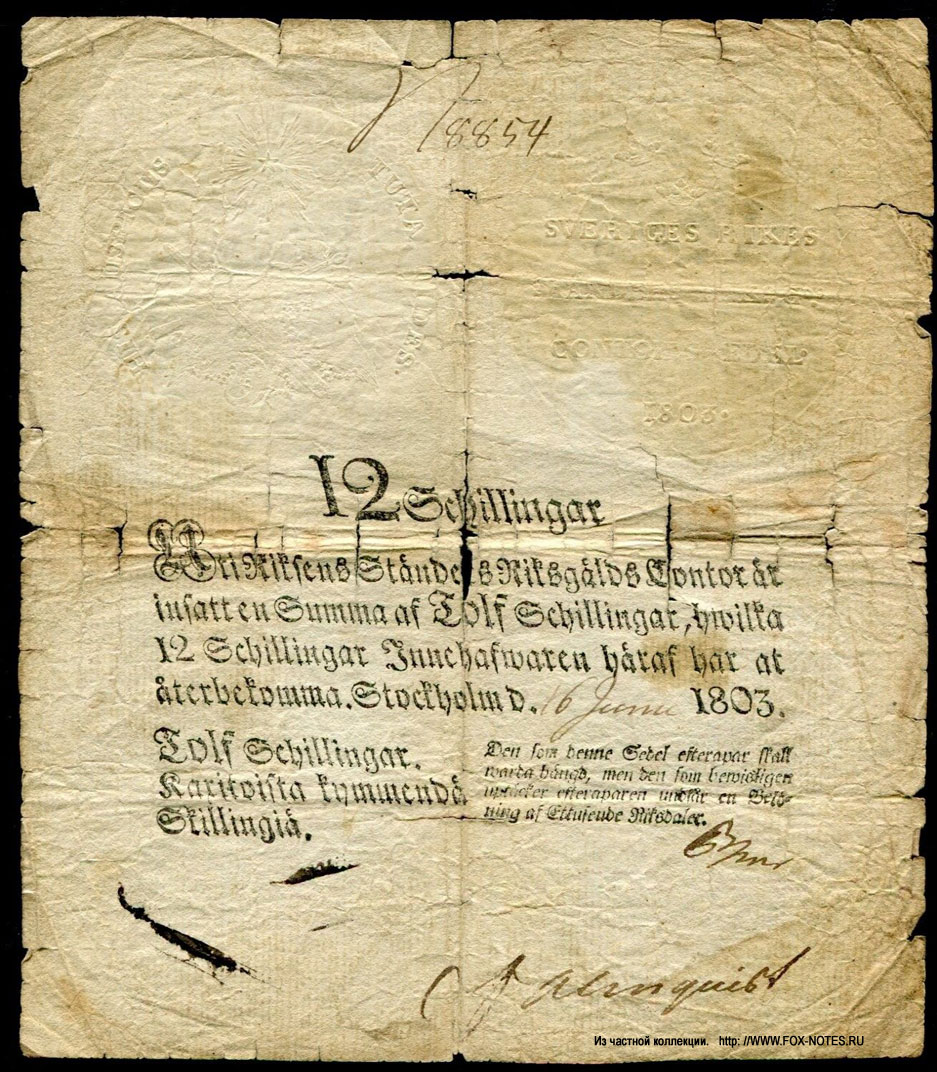 18854
TUTA
SVERIGES RIKES
1803.
12 Schillingar
Uti Riksens Ständers Riksgälds Contor är
insatt en Summa af Tolf Schillingar, hwilka
12 Schillingar Innehafwaren häraf har at
återbekomma. Stockholm d. 16 Junii 1803.
Tolf Schillingar.
Kaxitoista kymmendä
Skillingiä.
Den som denne Sedel efterapar skall
warda hängd, men den som bewisligen
uptäcker efteraparen undfår en Belö-
ning af Ettusende Riksdaler.
Almquist
Из частной коллекции. http: //WWW.FOX-NOTES.RU